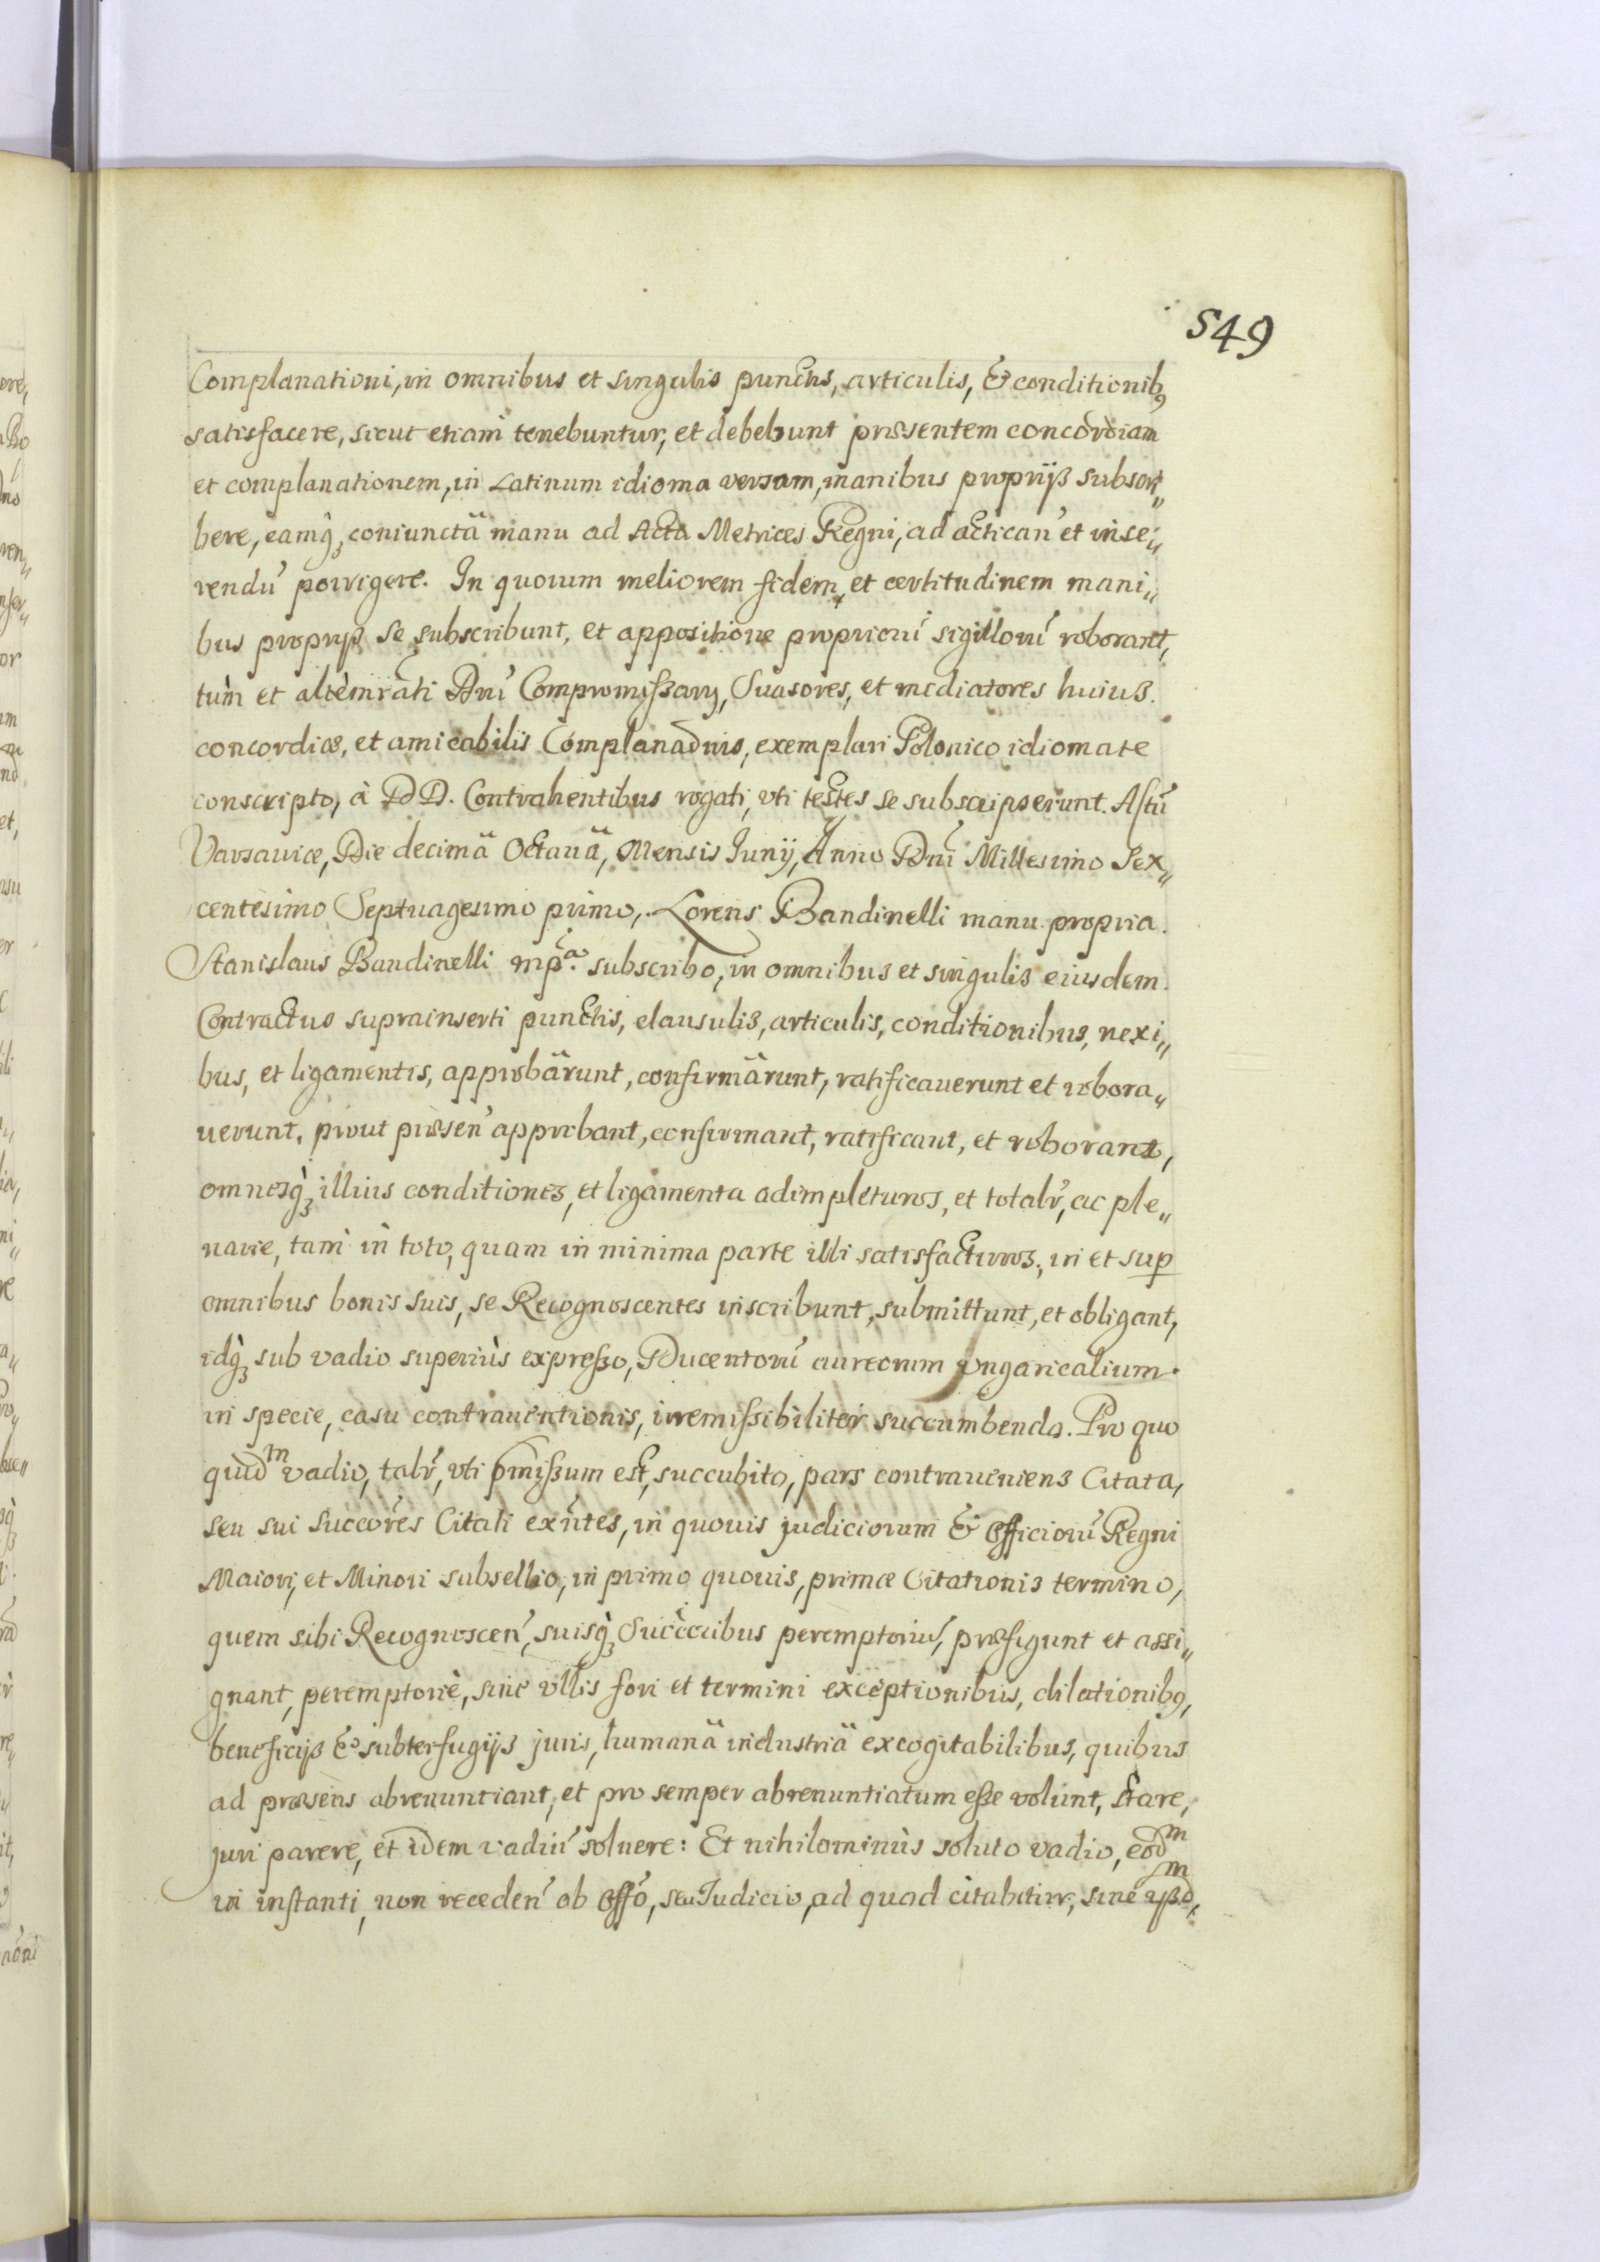 549
Complanationi, in omnibus et singulis punctis, articulis, & conditionibꝫ
satisfacere, sicut etiam̀ tenebuntur, et debebunt præsentem concordiam
et complanationem, in Latinum idioma versam, manibus proprijs subscri„
bere, eamq̀ꝫ coniunctâ manu ad Acta Metrices Regni, ad acticań et inse„
rendú porrigere. In quorum meliorem fidem, et certitudinem mani„
bus proprijs se subscribunt, et appositione propriorú sigillorú roborant,
tùm et altèmrati Dni Compromissarij, Suasores, et mediatores huius
concordiæ, et amicabilis Complanaõnis, exemplari Polonico idiomate
conscripto, à DD. Contrahentibus rogati, vti testes se subscripserunt. Actú
Varsauiæ, Die decimâ Octauâ, Mensis Junij, Anno Dni Millesimo Sex„
centesimo Septuagesimo primo, Lorens Bandinelli manu propria.
Stanislaus Bandinelli mpa. subscribo, in omnibus et singulis eiusdem
Contractus suprainserti punctis, clausulis, articulis, conditionibus, nexi„
bus, et ligamentis, approbârunt, confirmârunt, ratificauerunt et robora„
uerunt, prout præseń approbant, confirmant, ratificant, et roborant,
omnesq̀ꝫ illius conditiones, et ligamenta adimpleturos, et totalŕ, ac ple„
narie, tam̀ in toto, quam in minima parte illi satisfacturos, in et sup
omnibus bonis suis, se Recognoscentes inscribunt, submittunt, et obligant,
idq̀ꝫ sub vadio superiùs expresso, Ducentorú aureorum Vngaricalium
in specie, casu contrauentionis, irremissibiliter succumbendo. Pro quo
quidm vadio, talŕ, vti pmissum est, succubito, pars contraueniens Citata,
seu sui succores Citati exntes, in quouis judiciorum & Officiorú Regni
Maiori, et Minori subsellio, in primo quouis, primæ Citationis termino,
quem sibi Recognosceń, suisq̀ꝫ Succoribus peremptoriú, præfigunt et assi„
gnant, peremptoriè, sine vllis fori et termini exceptionibus, dilationibꝫ,
beneficijs & subterfugijs juris, humanâ industriâ excogitabilibus, quibus
ad præsens abrenuntiant, et pro semper abrenuntiatum esse volunt, Stare,
juri parere, et idem vadiú soluere: Et nihilominùs soluto vadio, eodm
in instanti, non recedeń ab Offo, seu Judicio, ad quod citabitur, sine ipsom,